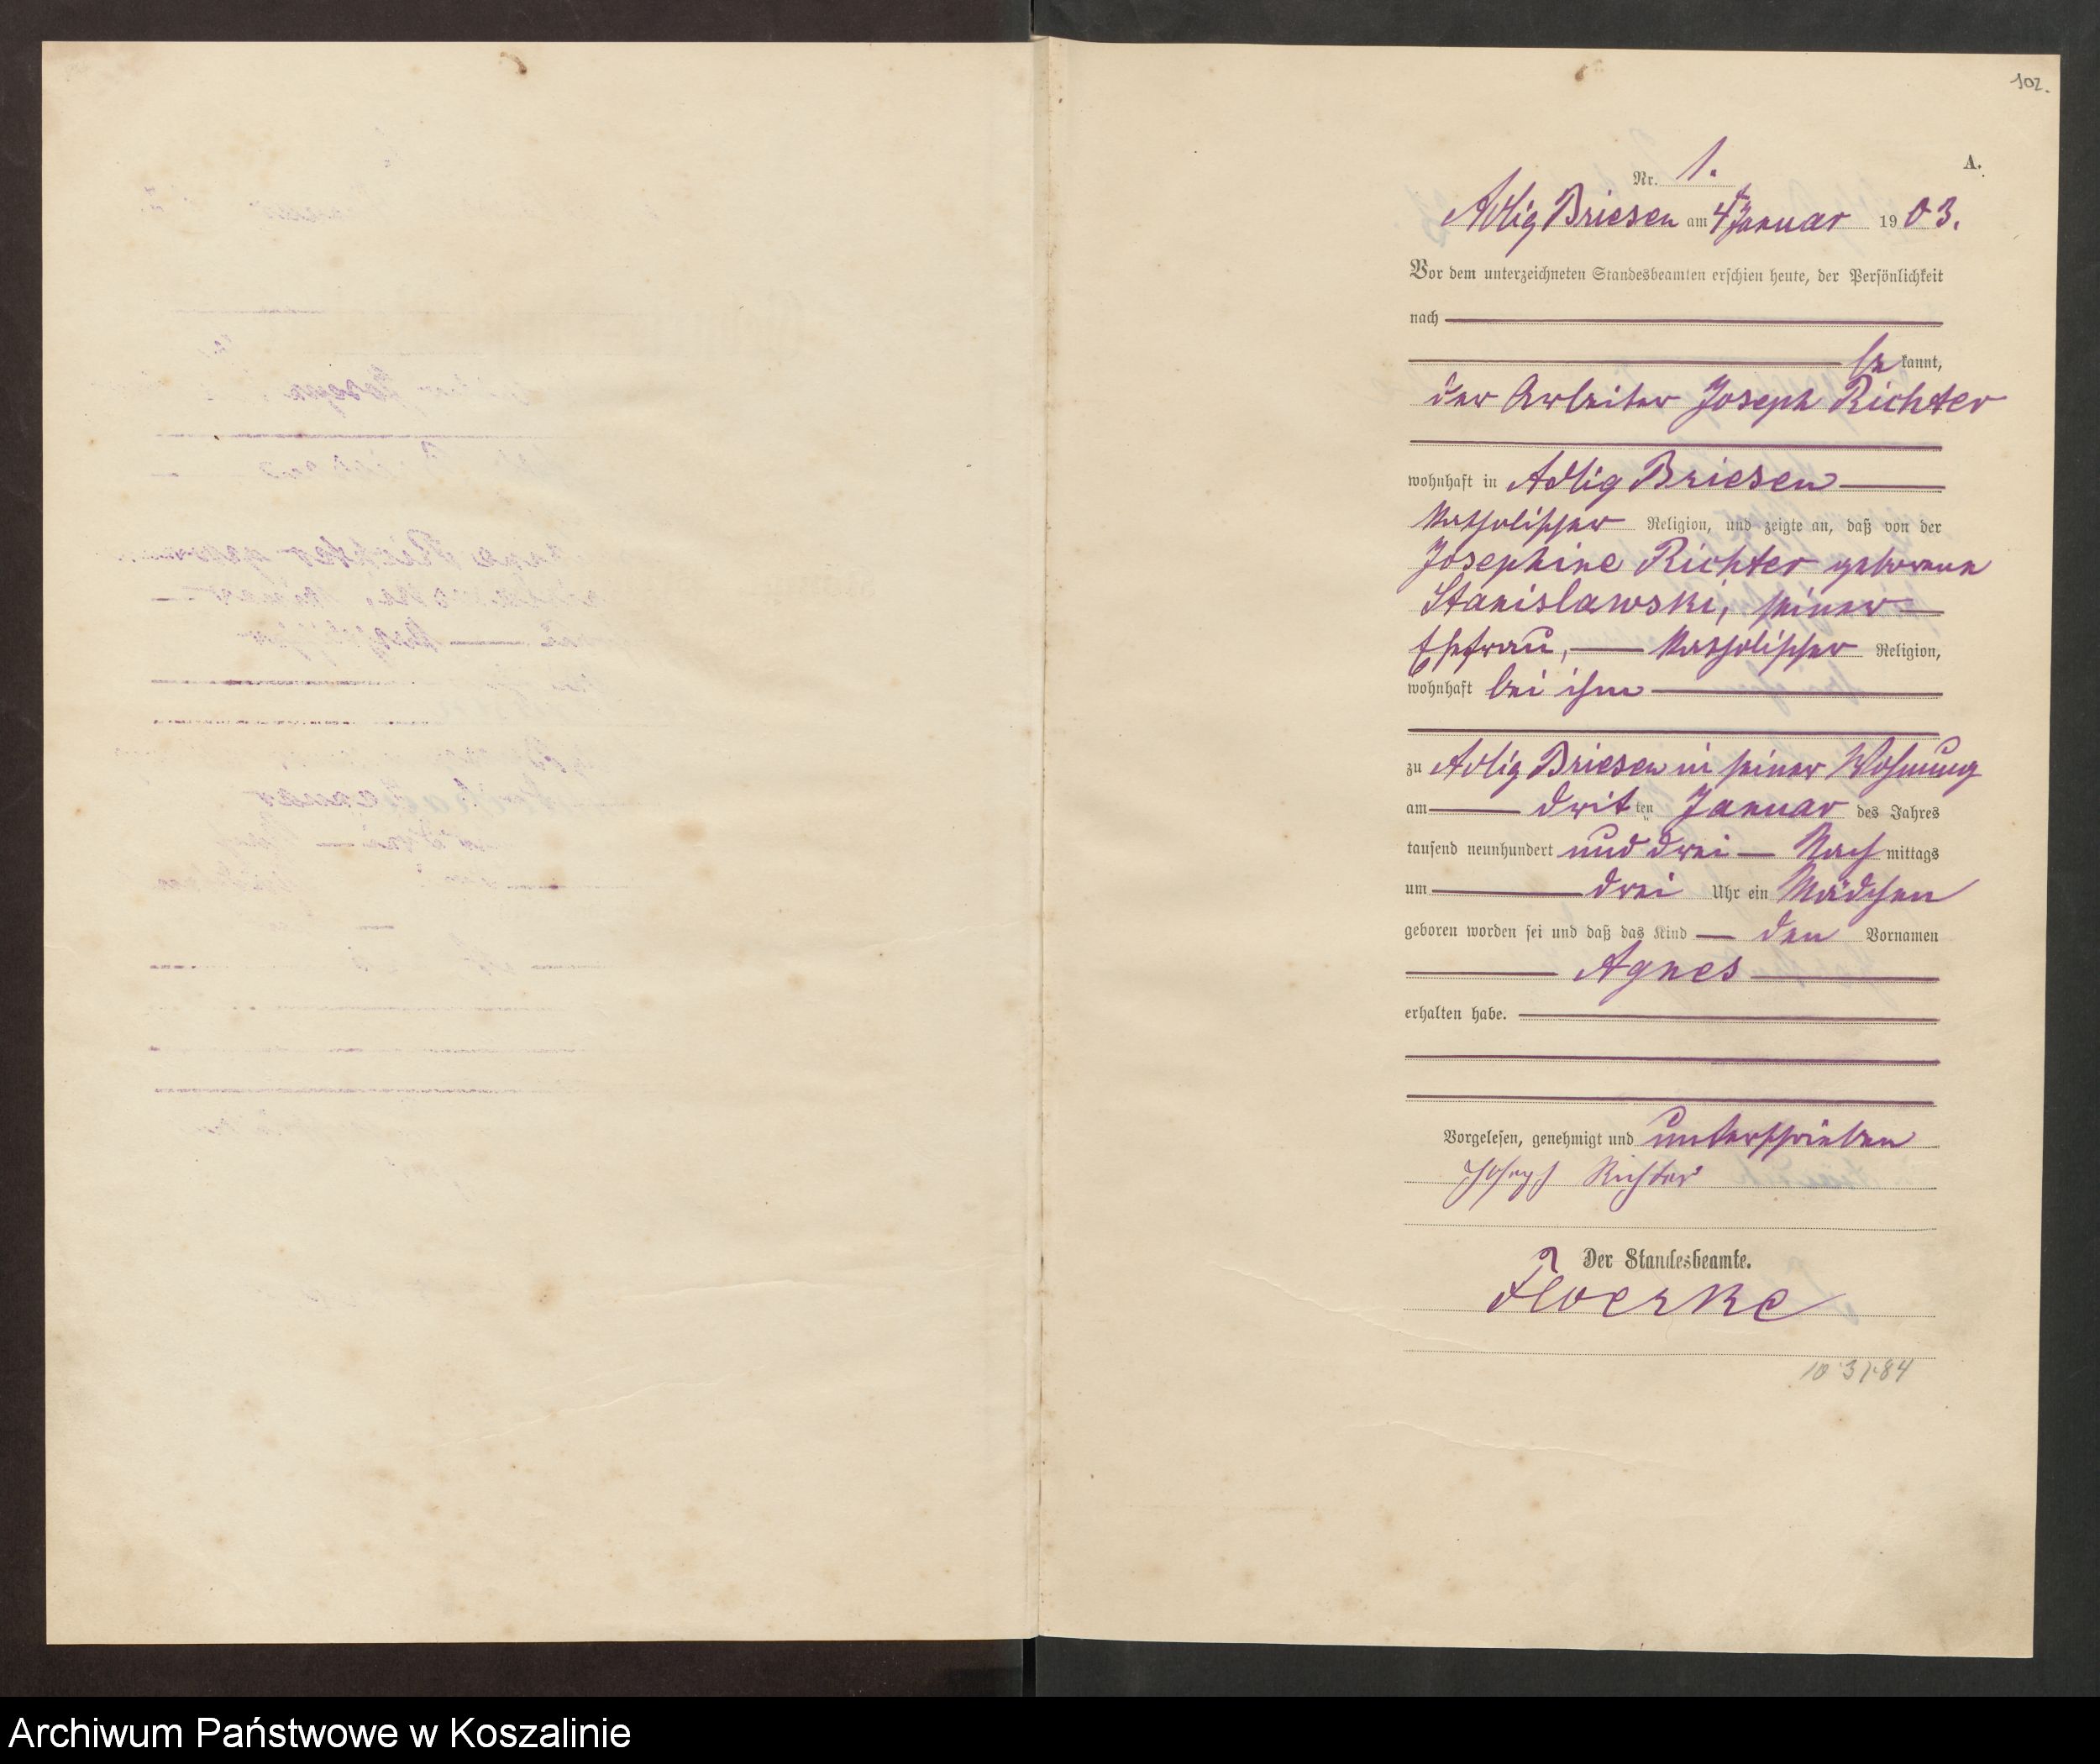 102.
A.
Nr. 1.
Adlig Briesen am 4t Januar 1903.
Vor dem unterzeichneten Standesbeamten erschien heute, der Persönlichkeit
nach
be kannt,
der Arbeiter Joseph Richter
wohnhaft in Adlig Briesen
katholischer Religion, und zeigte an, daß von der
Josephine Richter geborene
Stanislawski, seiner
Ehefrau, katholischer Religion,
wohnhaft bei ihm
zu Adlig Briesen in seiner Wohnung
am drit ten Januar des Jahres
tausend neunhundert und drei Nach mittags
um drei Uhr ein Mädchen
geboren worden sei und daß das Kind den Vornamen
Agnes
erhalten habe.
Vorgelesen, genehmigt und unterschrieben
Joseph Richter
Der Standesbeamte.
Floerke
Archiwum Państwowe w Koszalinie